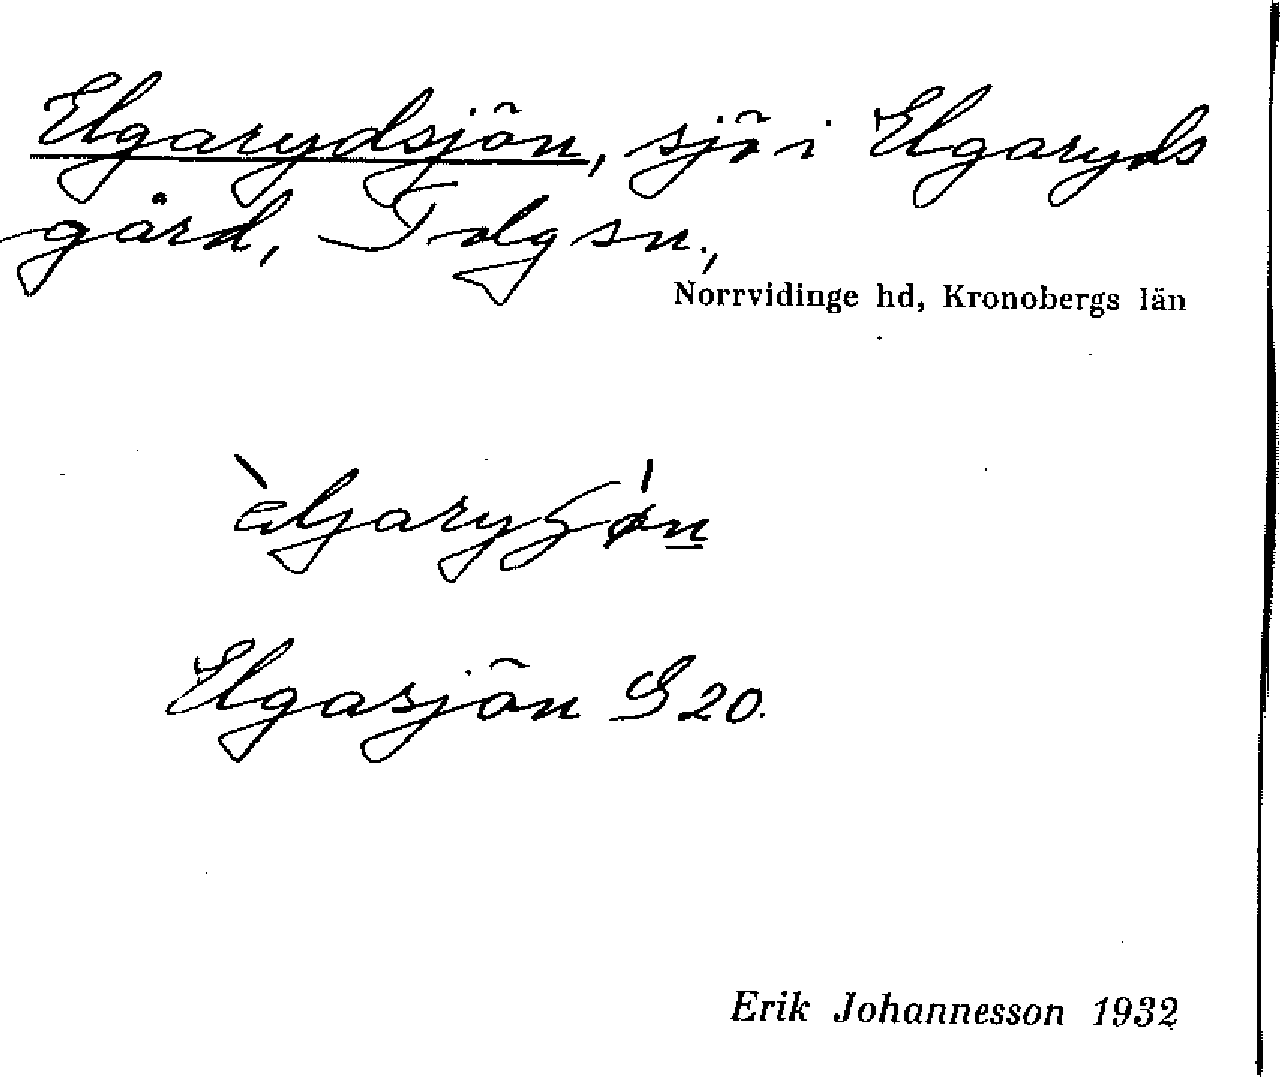 Elgarydsjön, sjö i Elgaryds
gård, Tolg sn.,
Norrvidinge hd, Kronobergs län
Elgasjön G 20.
Erik Johannesson 1932